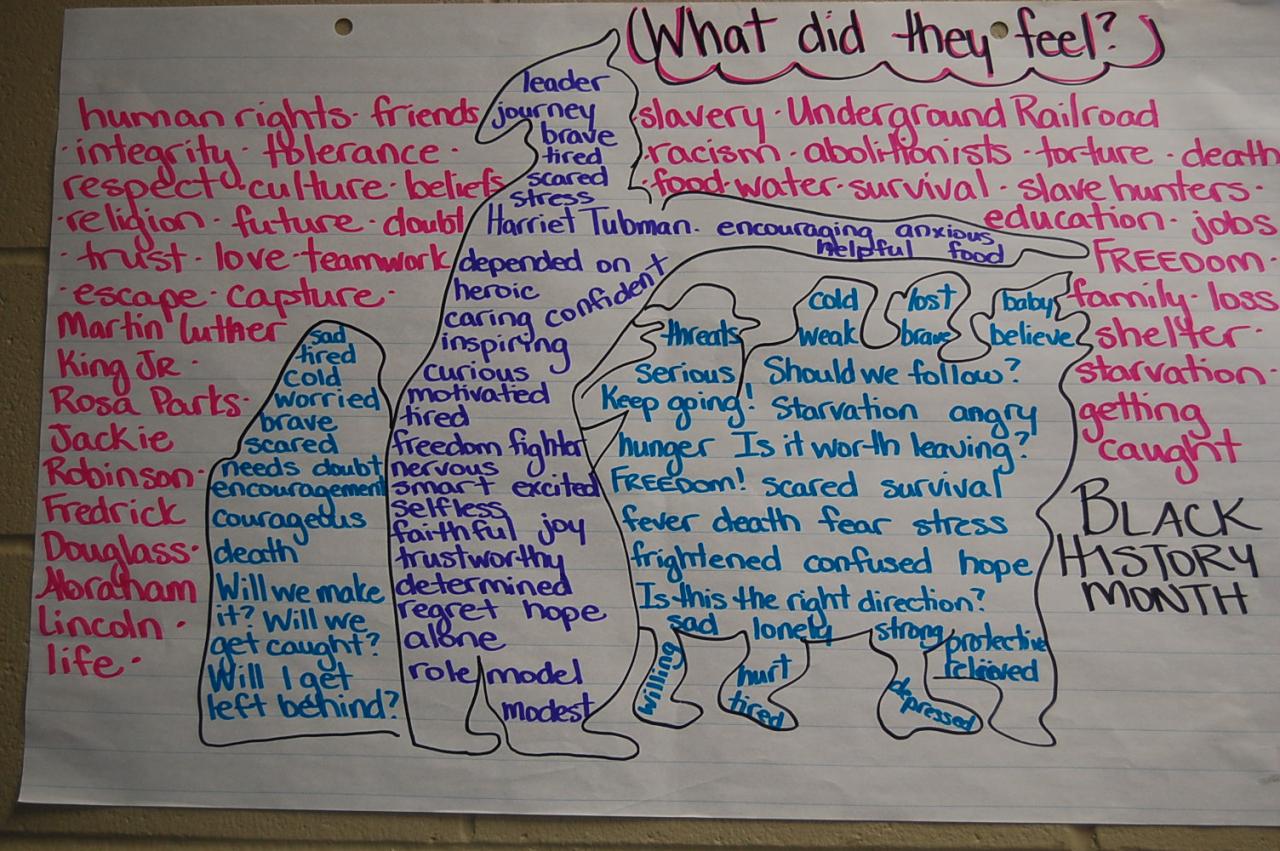 (What did they feel?)
human rights · friends
· integrity · tolerance ·
respect · culture · beliefs
· religion · future · doubt
· trust · love · teamwork
· escape · capture ·
Martin Luther
King JR ·
Rosa Parks ·
Jackie
Robinson ·
Fredrick
Douglass ·
Abraham
Lincoln ·
life ·
sad
tired
cold
worried
brave
scared
needs doubt
encouragement
courageous
death
Will we make
it? Will we
get caught?
Will I get
left behind?
leader
journey
brave
tired
scared
stress
Harriet Tubman. encouraging anxious
helpful food
depended on
heroic
caring confident
inspiring
curious
motivated
tired
freedom fighter
nervous
smart excited
selfless
faithful joy
trustworthy
determined
regret hope
alone
role model
modest
threats
cold
weak
lost
brave
baby
believe
serious Should we follow?
Keep going! Starvation angry
hunger Is it worth leaving?
FREEDOM! scared survival
fever death fear stress
frightened confused hope
Is this the right direction?
sad lonely strong protective
willing
hurt
tired
depressed
relieved
slavery · Underground Railroad
· racism · abolitionists · torture · death
· food · water · survival · slave hunters ·
education · jobs
FREEDOM ·
family · loss
shelter ·
starvation ·
getting
caught
BLACK
HISTORY
MONTH